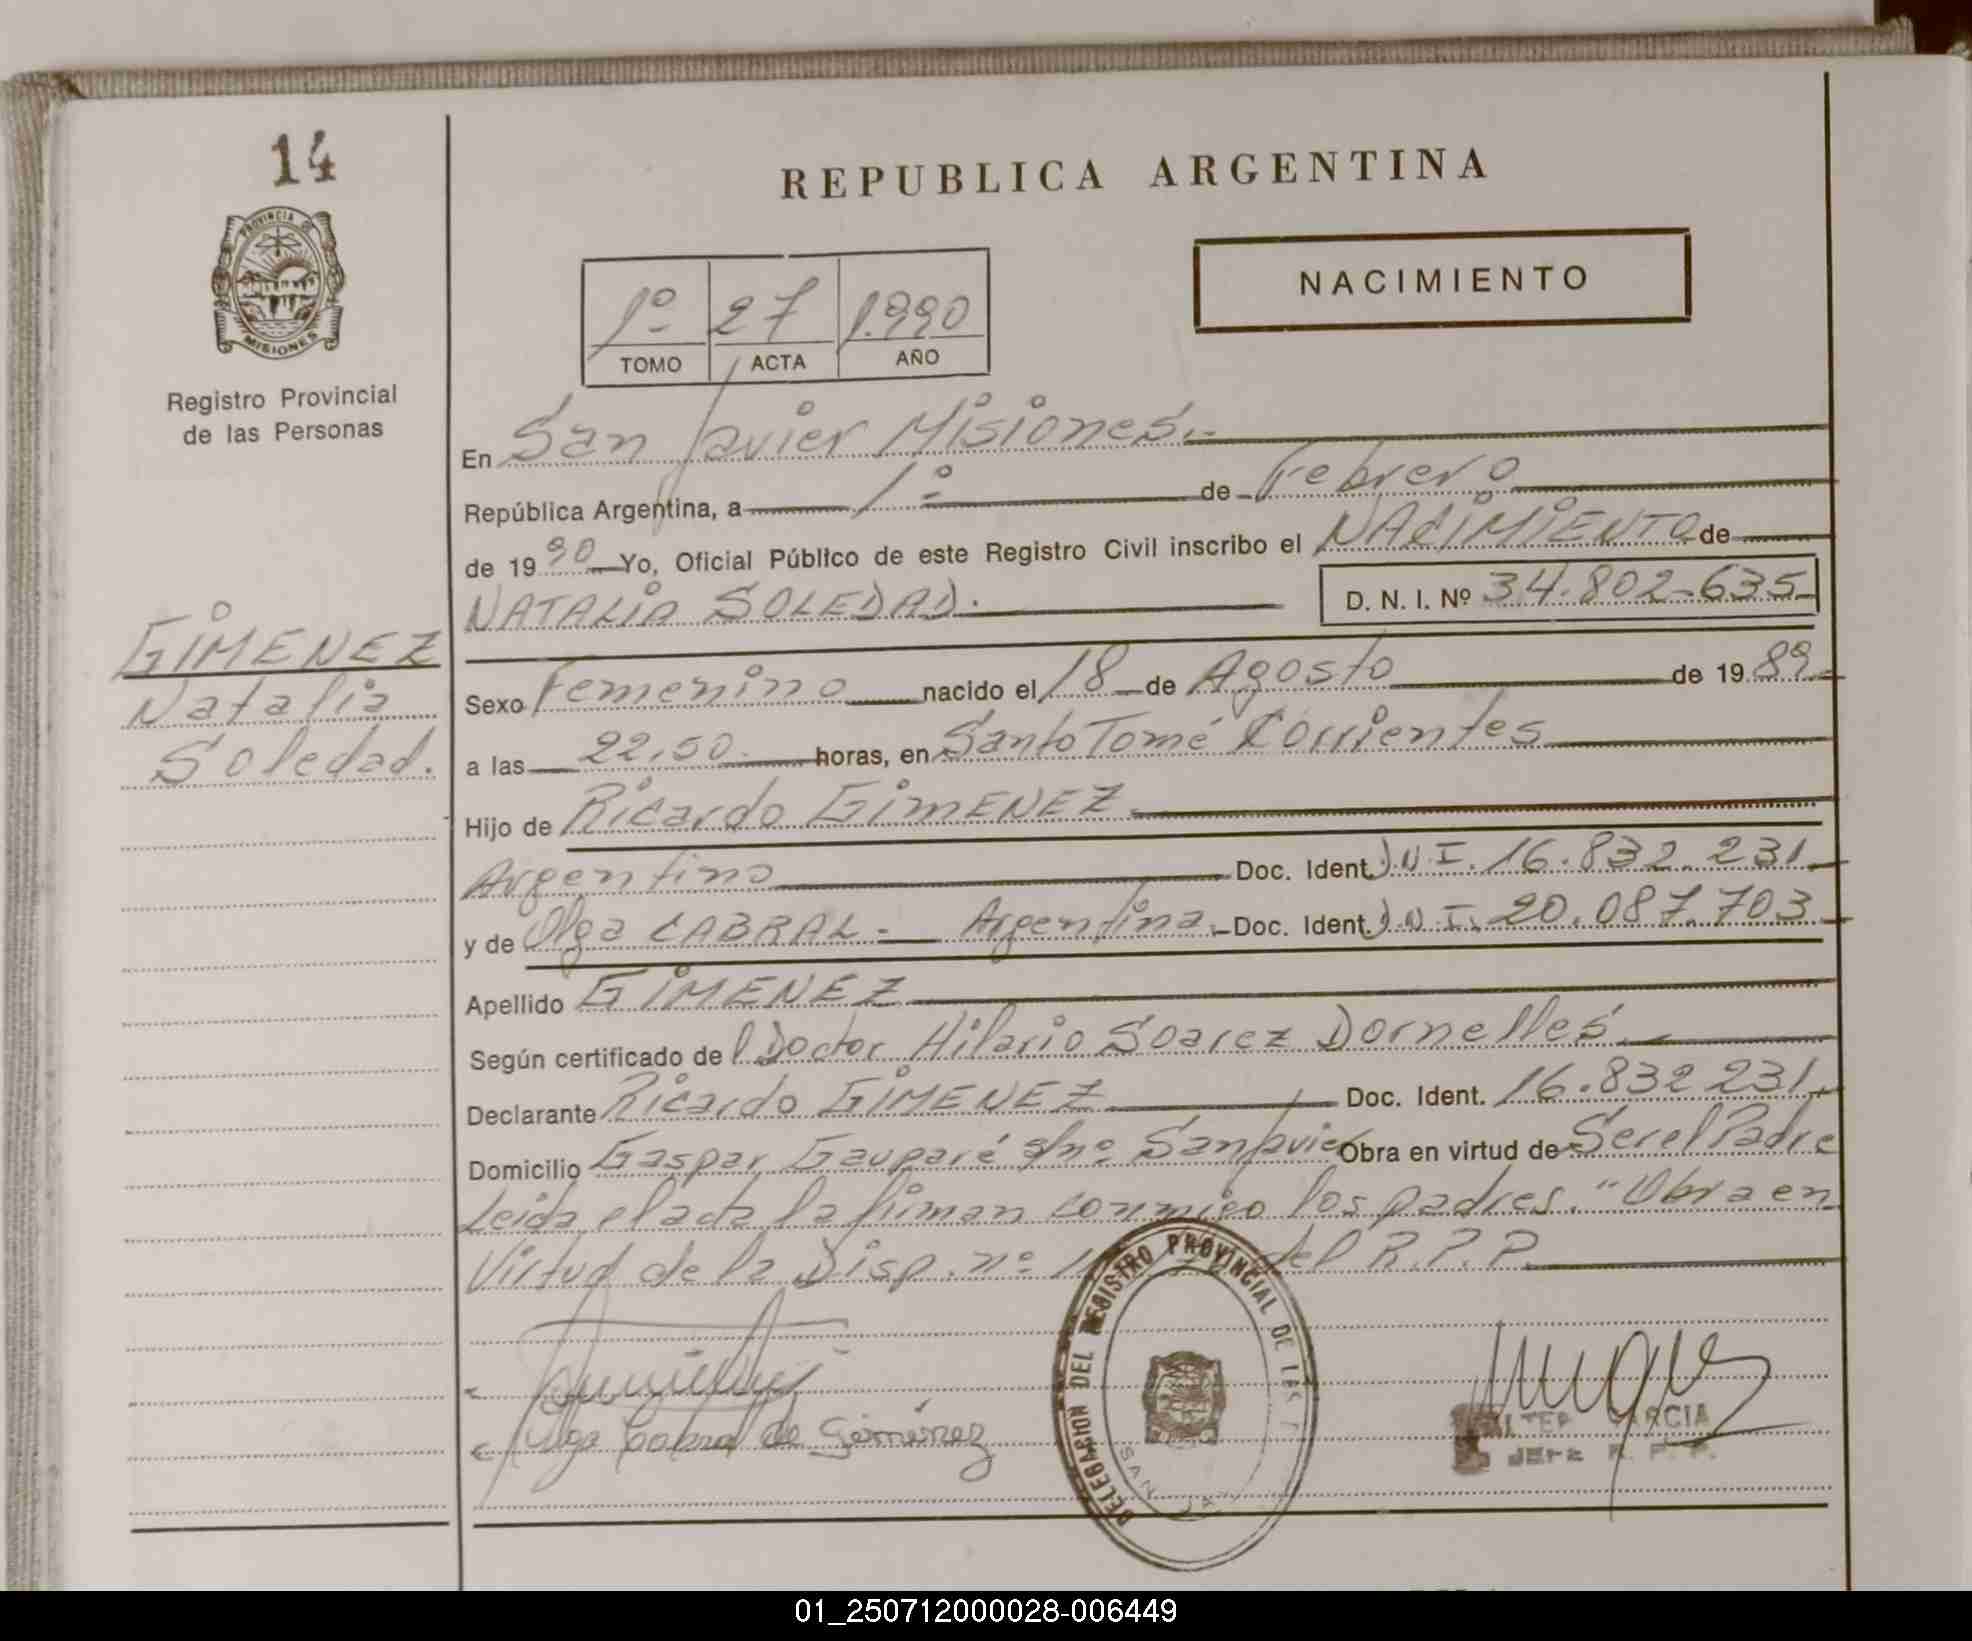 14
REPUBLICA ARGENTINA
PROVINCIA DE
MISIONES
NACIMIENTO
1º 27 1.990
TOMO ACTA AÑO
Registro Provincial
de las Personas
En San Javier Misiones.-
República Argentina, a 1º de Febrero
de 1990 Yo, Oficial Público de este Registro Civil inscribo el NACIMIENTO de
NATALIA SOLEDAD.
D. N. I. Nº 34.802-635
GIMENEZ
Natalia
Soledad.
Sexo Femenino nacido el 18 de Agosto de 1989
a las 22,50 horas, en Santo Tomé Corrientes
Hijo de Ricardo GIMENEZ
Argentino Doc. Ident. D.N.I. 16.832.231
y de Olga CABRAL.- Argentina. Doc. Ident. D.N.I. 20.087.703
Apellido GIMENEZ
Según certificado del Doctor Hilario Soarez Dornelles
Declarante Ricardo GIMENEZ Doc. Ident. 16.832 231
Domicilio Gaspar s/nº San Javier Obra en virtud de Ser el Padre
Leida el acta la firman conmigo los padres. "Obra en
Virtud de la Disp. nº del R.P.P.
Olga Cabral de Giménez
DELEGACION DEL REGISTRO PROVINCIAL DE LAS
SAN
GARCIA
JEFE R. P. P.
01_250712000028-006449